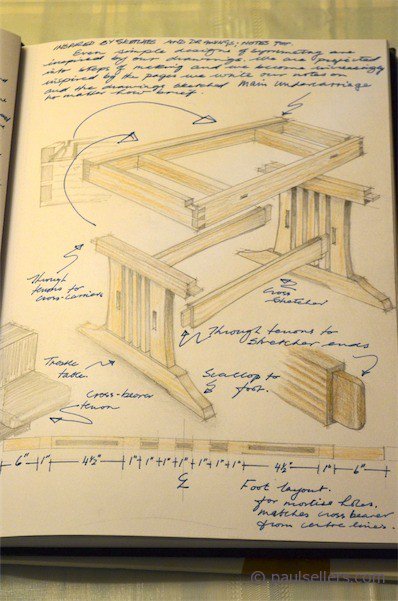 INSPIRED BY SKETCHES AND DRAWINGS, NOTES TOO
Even simple designs of symmetry are
inspired by our drawings. We are projected
into steps of making and we become increasingly
inspired by the pages we write our notes on
and the drawings sketched Main undercarriage
no matter how brief.
Through
tenons to
cross-carriers
Cross
Stretcher
Through tenons to
Stretcher ends
Trestle
table.
Cross-bearer
tenon
Scallop to
foot.
6" 1" 4½" 1" 1" 1" 1" 1" 1" 1" 4½" 1" 6"
℄
Foot layout.
for mortise holes.
matches cross bearer
from centre lines.
© paulsellers.com